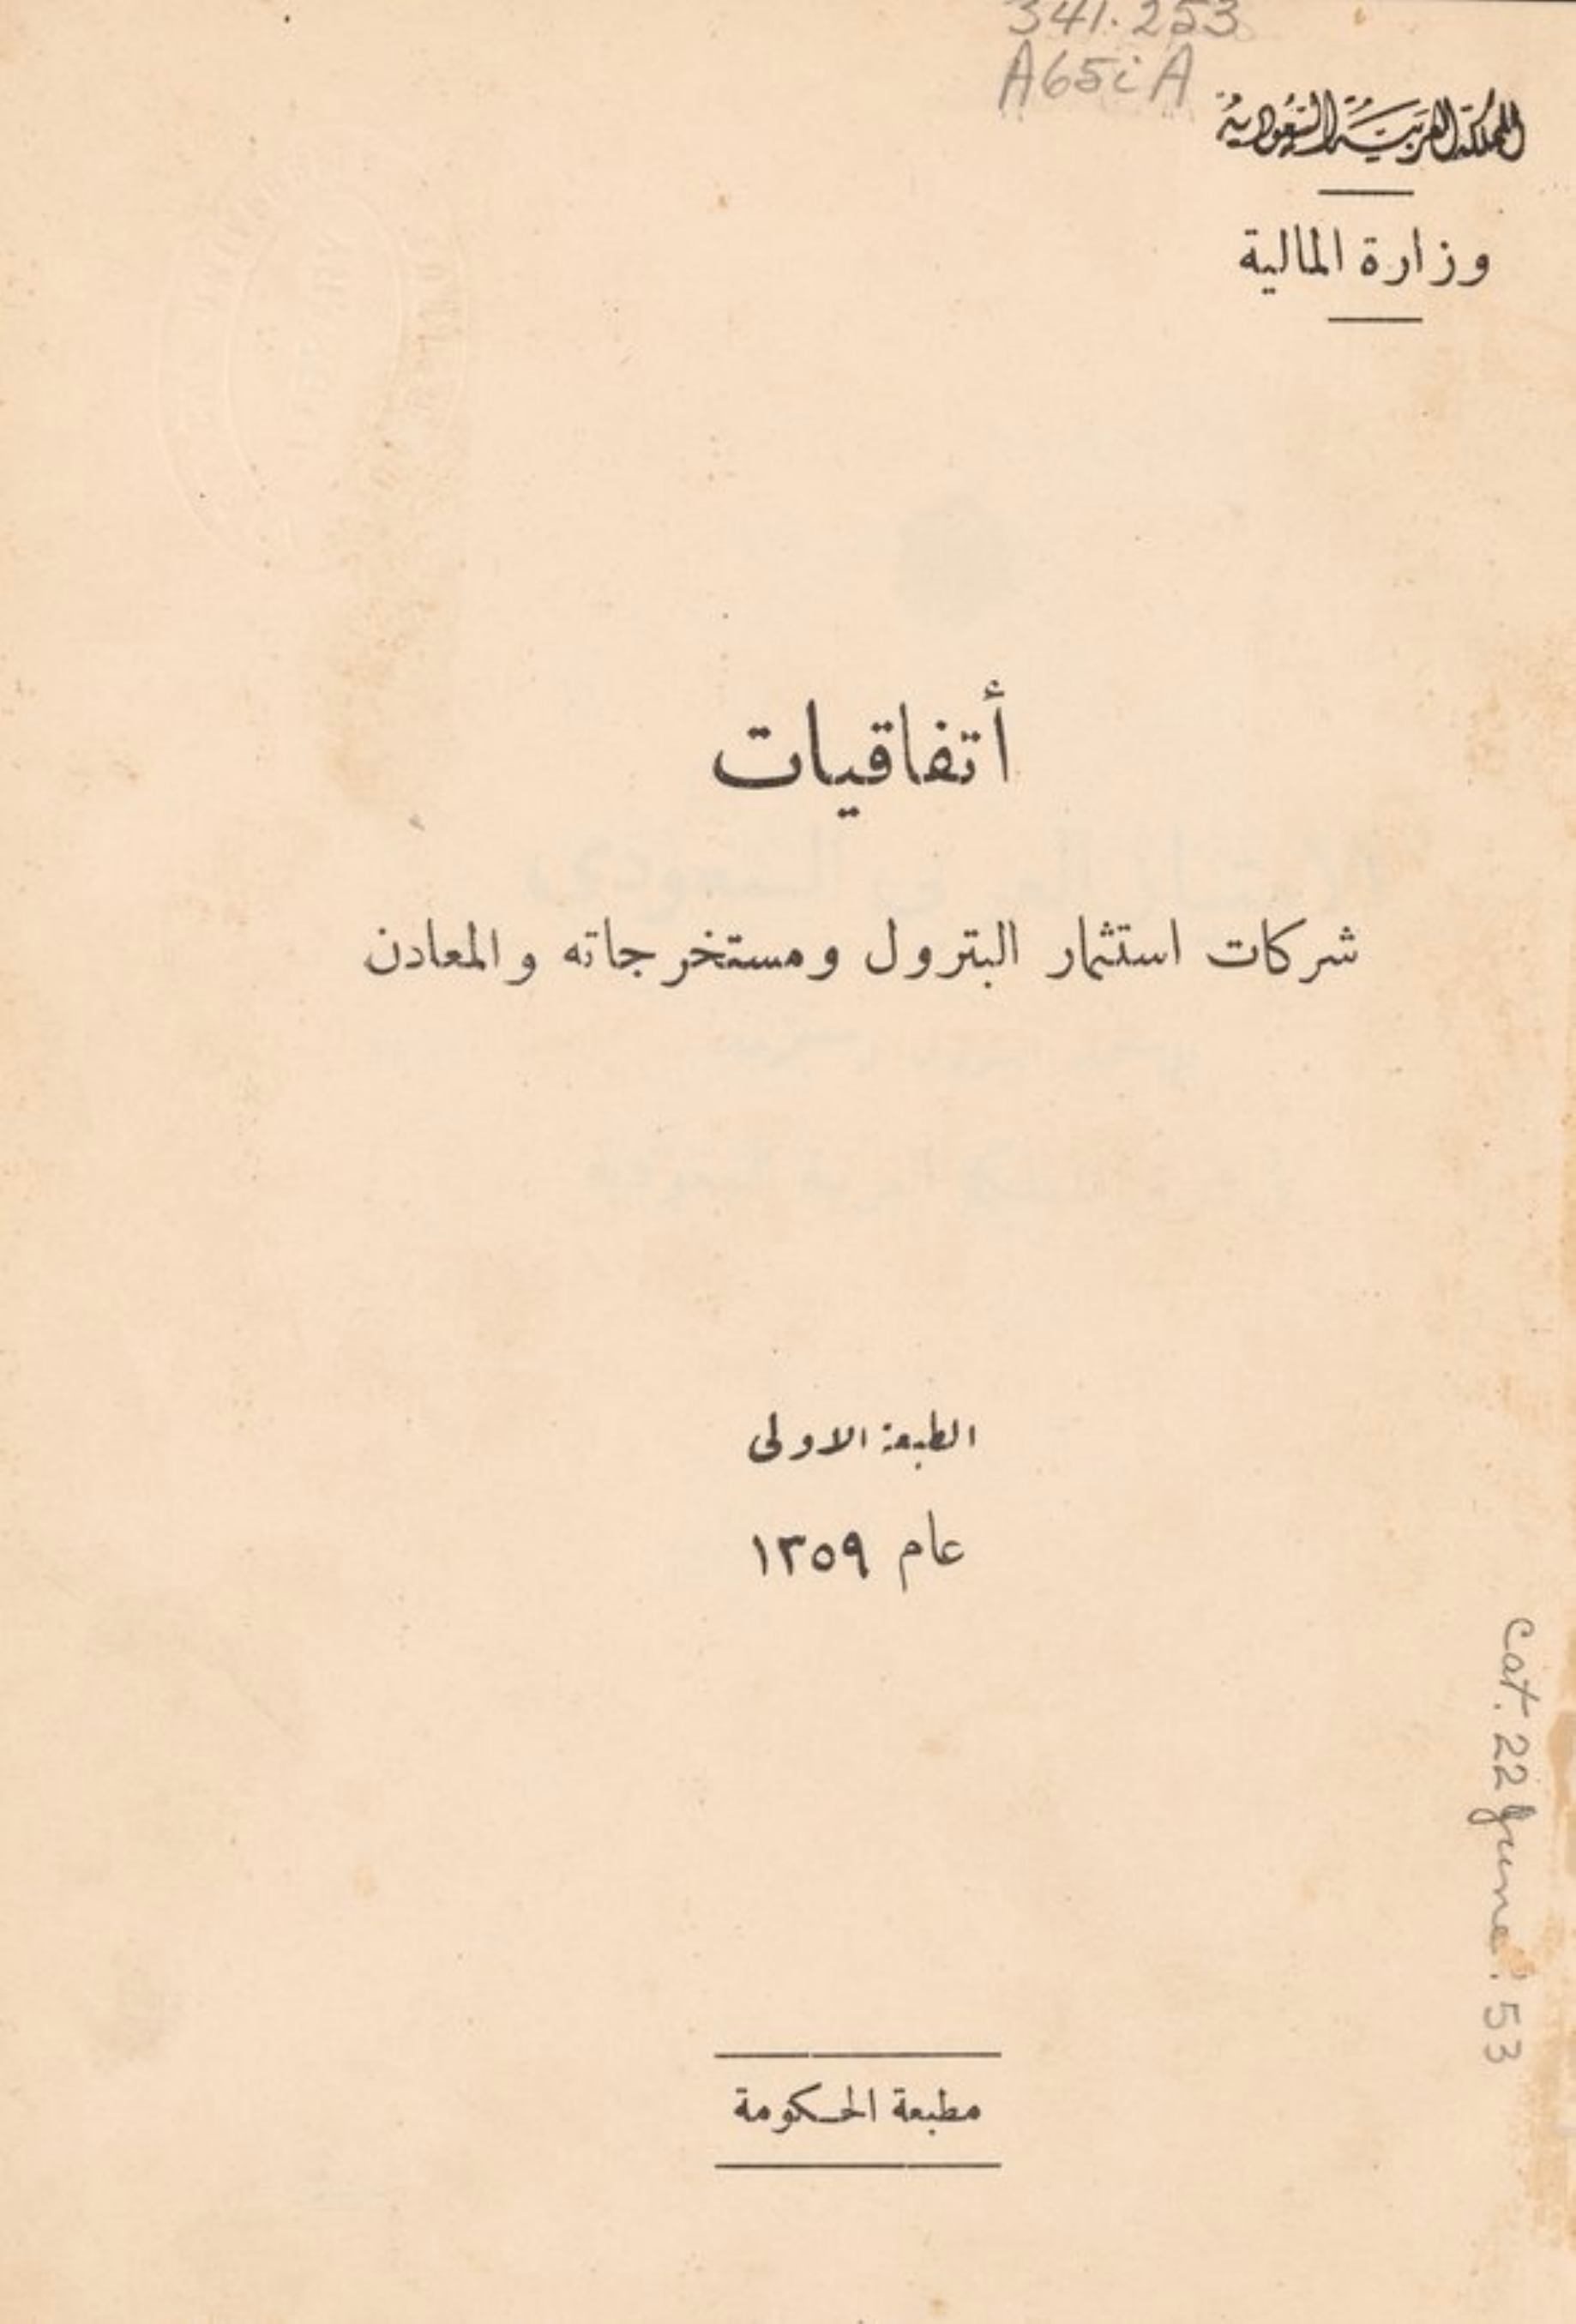 341.253
A65iA
المملكة العربية السعودية
وزارة المالية
أتفاقيات
شركات استثمار البترول ومستخرجاته والمعادن
الطبعة الاولى
عام ١٣٥٩
cat. 22 June '53
مطبعة الحكومة